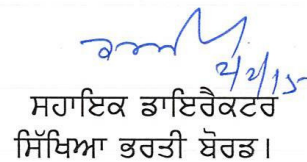 2/2/15
ਸਹਾਇਕ ਡਾਇਰੈਕਟਰ
ਸਿੱਖਿਆ ਭਰਤੀ ਬੋਰਡ।